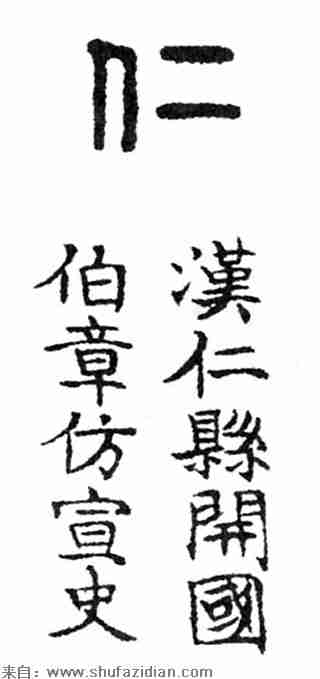 仁
漢仁縣開國
伯章仿宣史
来自：www.shufazidian.com